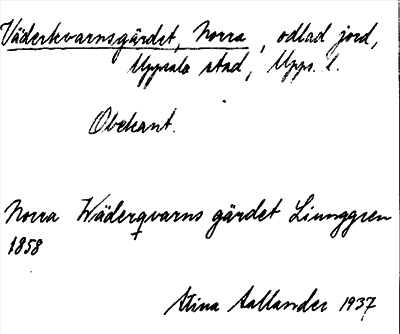 Väderkvarnsgärdet, Norra, odlad jord,
Uppsala stad, Upps. l.
Obekant.
Norra Wäderqvarns gärdet Liunggren
1858
Stina Aallander 1937